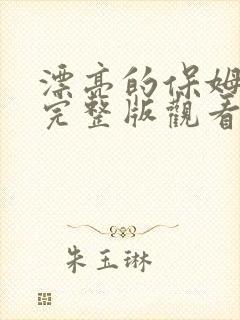 漂亮的保姆
完整版觀看
朱玉琳